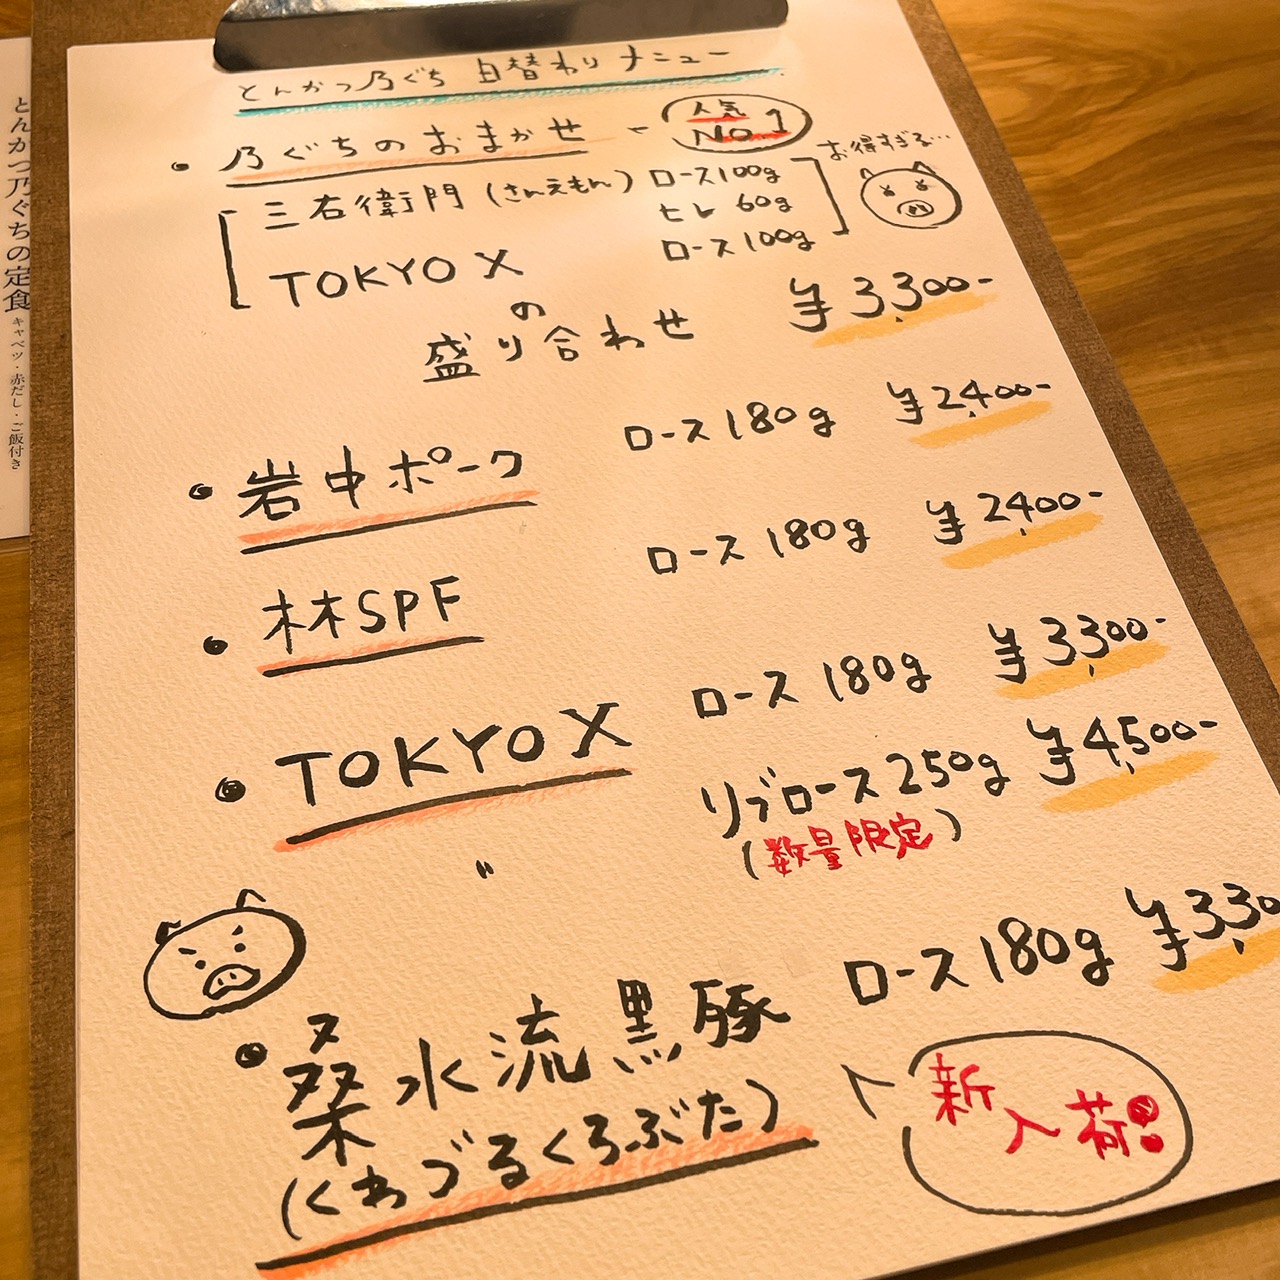 とんかつ乃ぐち 日替わりメニュー
・乃ぐちのおまかせ
人気
No.1
お得すぎる…
三右衛門(さんえもん) ロース100g
ヒレ 60g
TOKYO X ロース100g
の
盛り合わせ ¥3,300-
・岩中ポーク ロース180g ¥2,400-
・林SPF ロース180g ¥2,400-
・TOKYO X ロース180g ¥3,300-
〃 リブロース250g ¥4,500-
(数量限定)
・桑水流黒豚 ロース180g ¥3,30
(くわづるくろぶた)
新入荷!!
とんかつ乃ぐちの定食 キャベツ・赤だし・ご飯付き